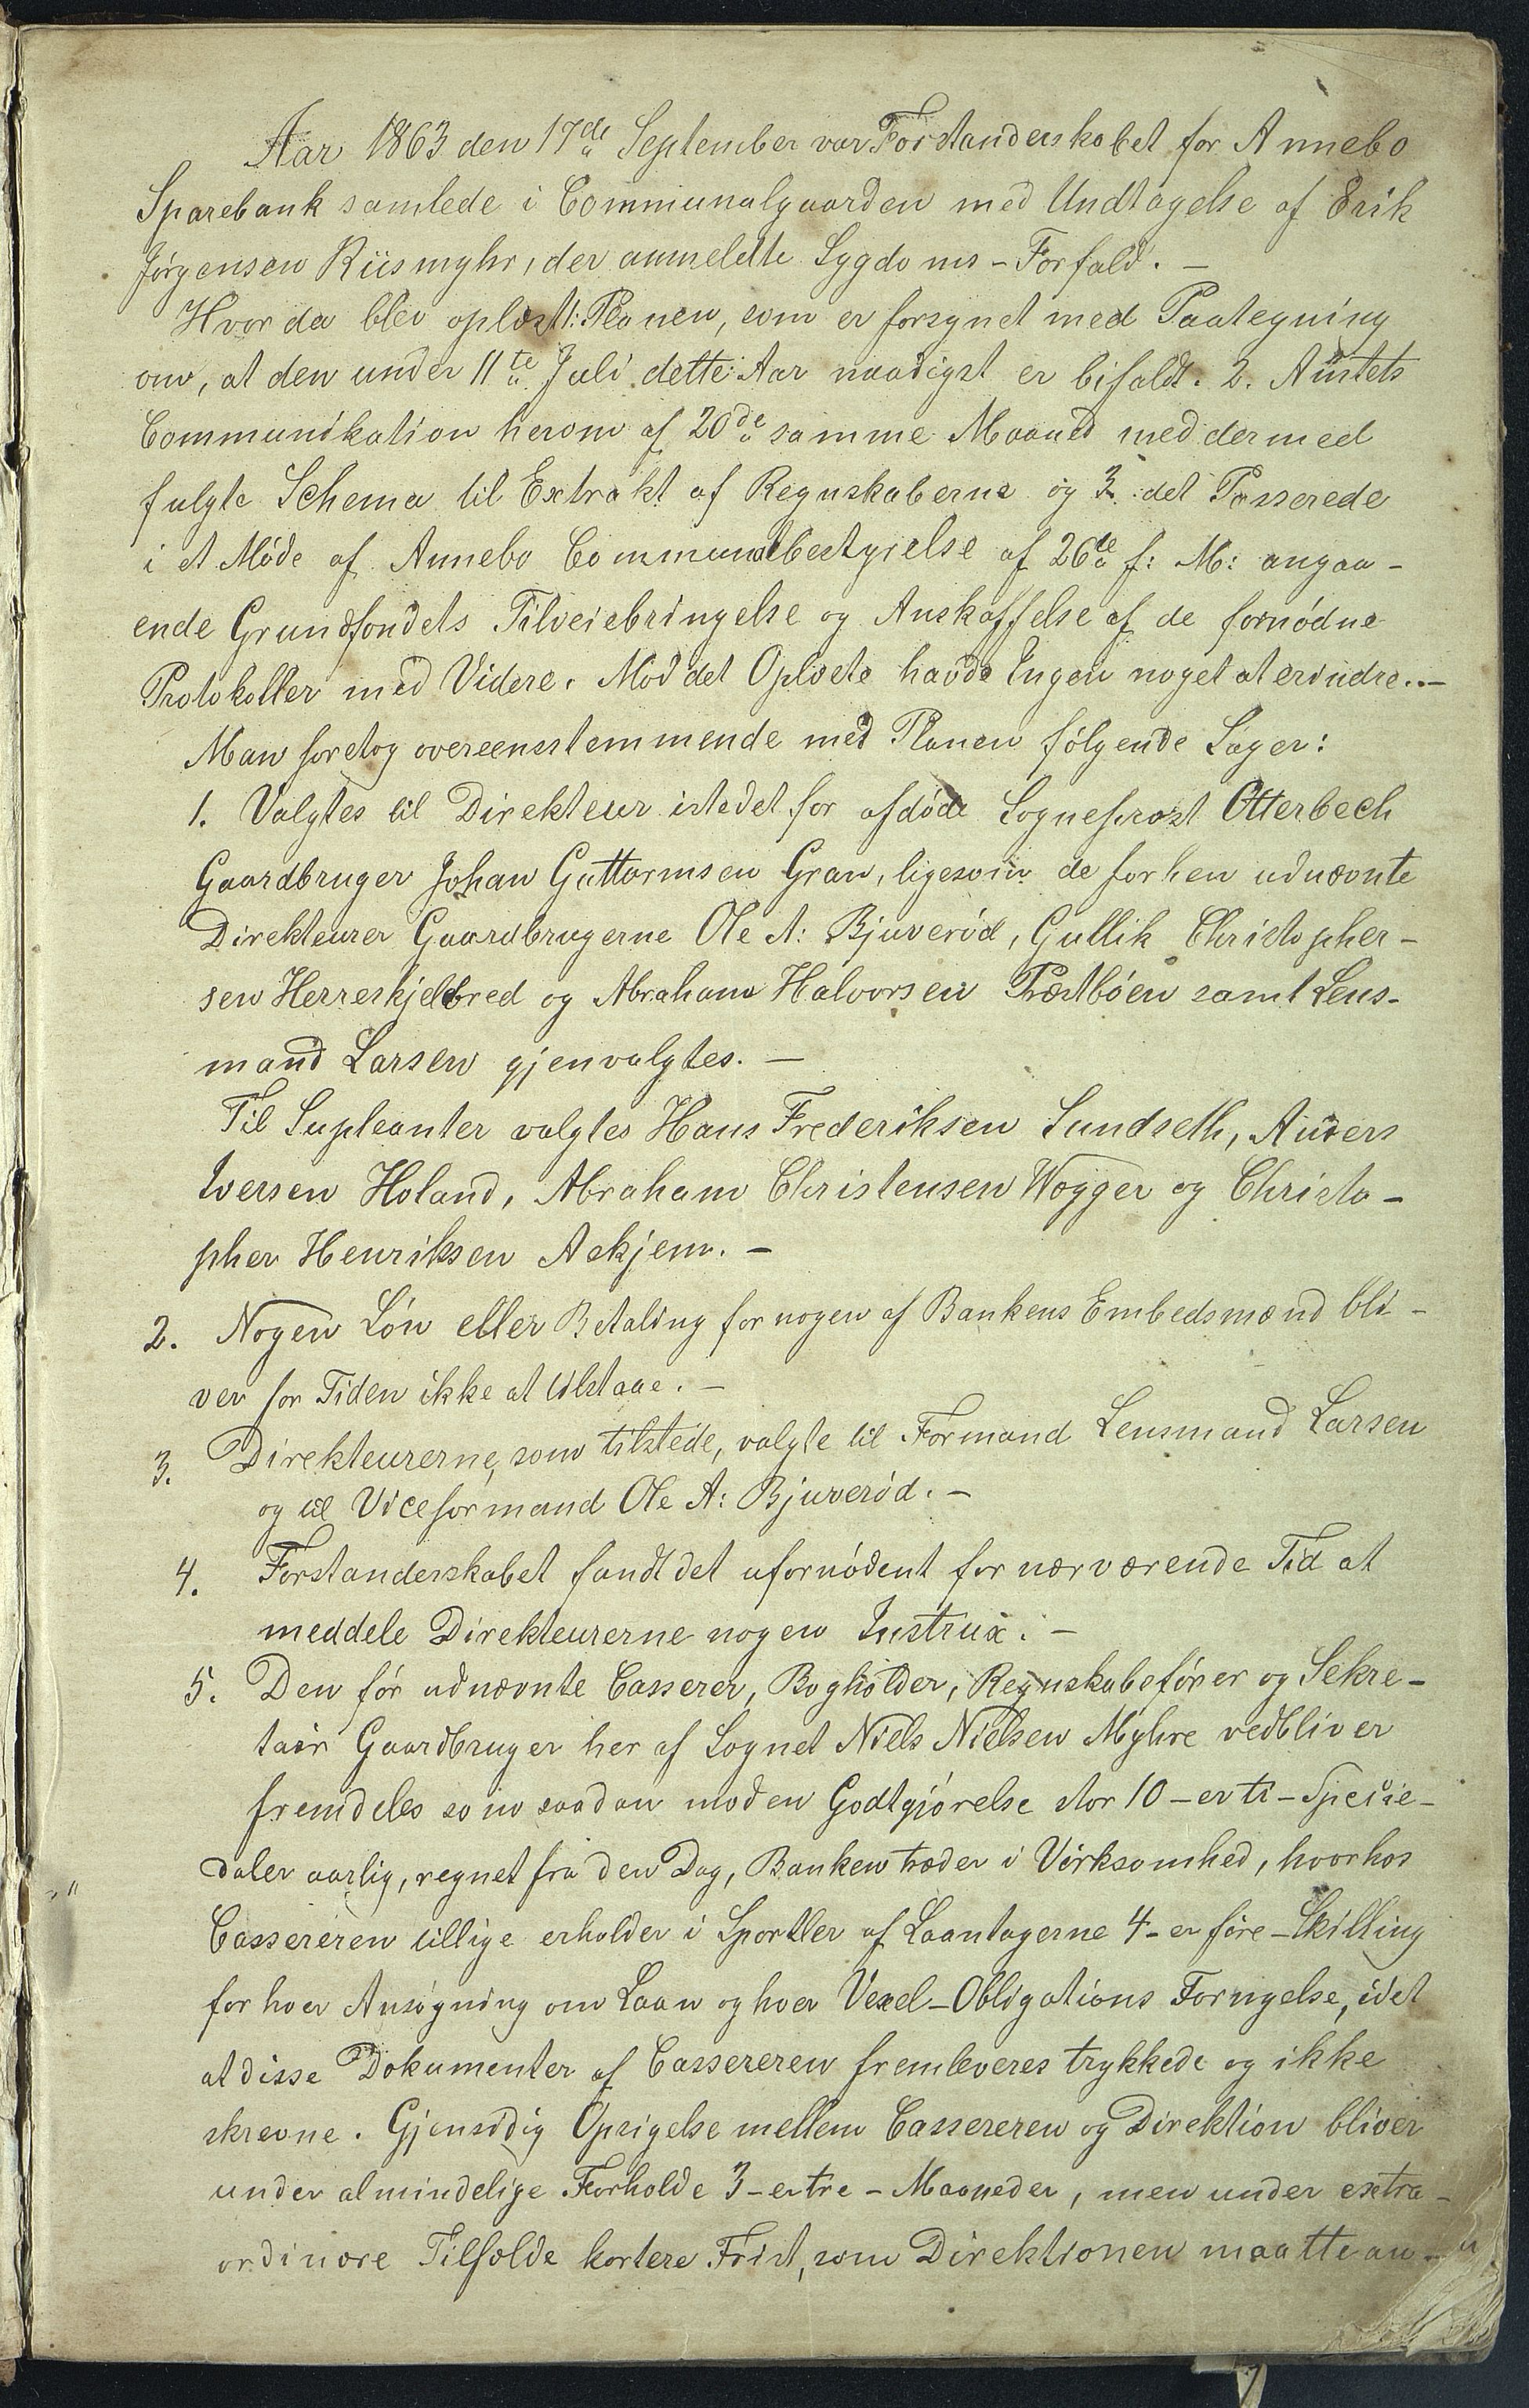 Aar 1863 den 17de September var Forstanderskabet for Annebo
Sparebank samlede i Communalgaarden med Undtagelse af Erik
Jørgensen Riismyhr, der anmeldte Sygdoms-Forfald. —
Hvor da blev oplæst 1: Planen, som er forsynet med Paategning
om, at den under 11te Juli dette Aar naadigst er bifaldt. 2. Amtets
Communikation herom af 20de samme Maaned med dermed
fulgte Schema til Extrakt af Regnskaberne og 3. det Passerede
i et Møde af Annebo Communebestyrelse af 26de f: M: angaa-
ende Grundfondets Tilveiebringelse og Anskaffelse af de fornødne
Protokoller med Videre. Mod det Oplæste havde Ingen noget at erindre. —
Man foretog overeensstemmende med Planen følgende Sager:
1. Valgtes til Direkteur istedet for afdøde Sogneprost Otterbech
Gaardbruger Johan Guttormsen Gran, ligesom de forhen udnævnte
Direkteurer Gaardbrugerne Ole A: Bjuverød, Gullik Christopher-
sen Herreskjelbred og Abraham Halvorsen Præstbøen samt Lens-
mand Larsen gjenvalgtes. —
Til Supleanter valgtes Hans Frederiksen Sundseth, Anders
Iversen Holand, Abraham Christensen Wogger og Christo-
pher Henriksen Askjem. —
2. Nogen Løn eller Betaling for nogen af Bankens Embedsmænd bli-
ver for Tiden ikke at tilstaae. —
3. Direkteurerne, som tilstede, valgte til Formand Lensmand Larsen
og til Viceformand Ole A: Bjuverød. —
4. Forstanderskabet fandt det ufornødent for nærværende Tid at
meddele Direkteurerne nogen Instrux. —
5. Den før udnævnte Casserer, Bogholder, Regnskabsfører og Sekre-
tair Gaardbruger her af Sognet Niels Nielsen Myhre vedbliver
fremdeles som saadan mod en Godtgjørelse stor 10 – er ti – Specie-
daler aarlig, regnet fra den Dag, Banken træder i Virksomhed, hvorhos
Cassereren tillige erholder i Sportler af Laantagerne 4 – er fire – Skilling
for hver Ansøgning om Laan og hver Vexel-Obligations Fornyelse, idet
at disse Dokumenter af Cassereren fremleveres trykkede og ikke
skrevne. Gjensidig Opsigelse mellem Cassereren og Direktion bliver
under almindelige Forholde 3 – er tre – Maaneder, men under extra-
ordinære Tilfælde kortere Frist, som Direktionen maatte an-